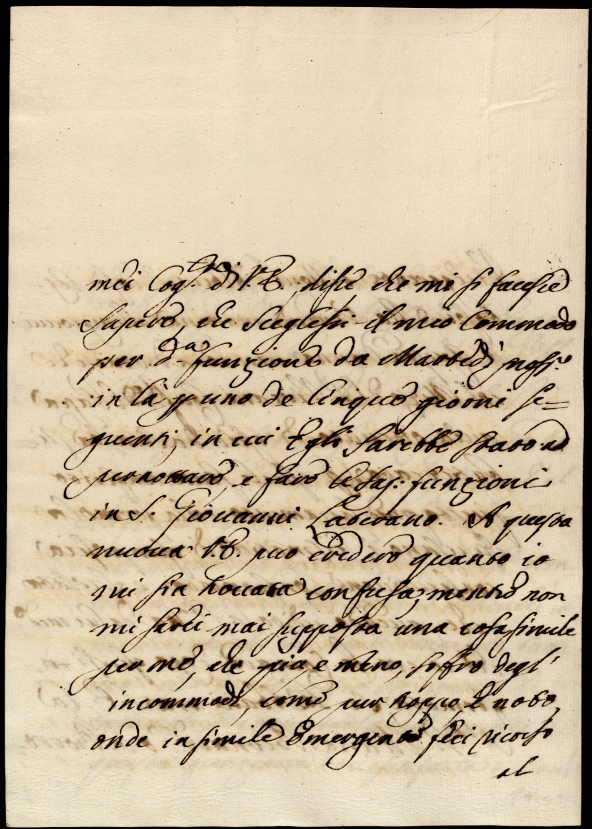 miei Cog.ti di V.E., disse, che mi si facesse
sapere, che sceglessi il mio Commodo
per d.a funzione da Martedì pross.o
in là p uno de Cinque giorni se=
guenti, in cui Egli sarebbe stato ad
pernottare, e fare le sag: funzioni
in S. Giovanni Laterano. A questa
nuova V.E. può credere quanto io
mi sia trovata confusa, mentre non
mi sarei mai supposta una cosa simile
per me, che più e meno, soffro degl'
incommodi, come pur troppo è noto,
onde in simile Emergente feci ricorso
al